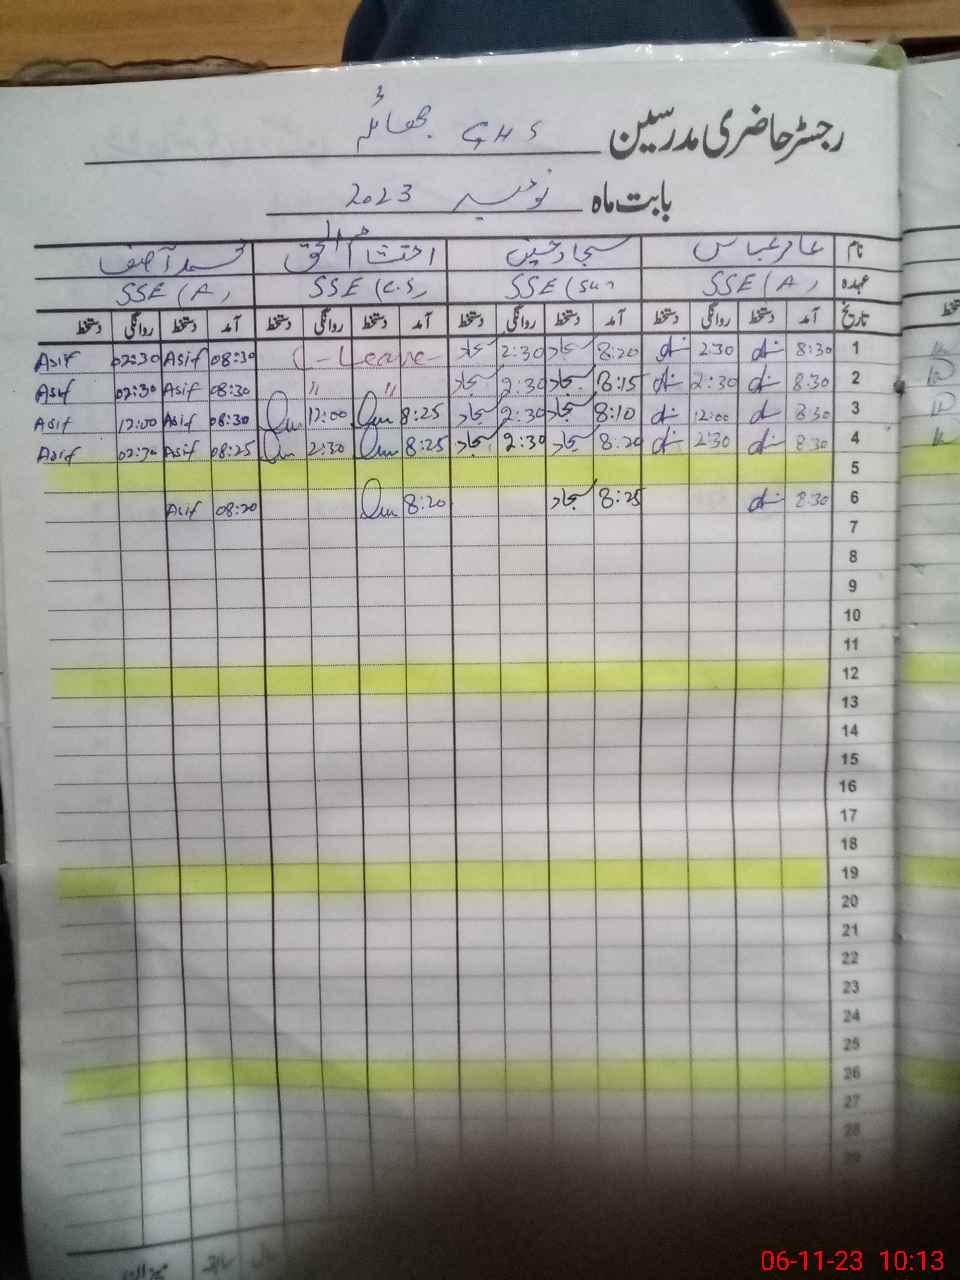 رجسٹر حاضری مدرسین GHS
بابت ماہ نومبر 2023
نام عامر عباس سجاد حسین احتشام الحق محمد آصف
عہدہ SSE (A) SSE (Sci) SSE (C.S) SSE (A)
تاریخ آمد دستخط روانگی دستخط آمد دستخط روانگی دستخط آمد دستخط روانگی دستخط آمد دستخط روانگی دستخط
1 8:30 2:30 8:20 سجاد 2:30 سجاد C-Leave 08:30 Asif 02:30 Asif
2 8:30 2:30 8:15 سجاد 2:30 سجاد " " 08:30 Asif 02:30 Asif
3 8:30 12:00 8:10 سجاد 2:30 سجاد 8:25 12:00 08:30 Asif 12:00 Asif
4 8:30 2:30 8:20 سجاد 2:30 سجاد 8:25 2:30 08:25 Asif 02:30 Asif
5
6 8:30 8:25 سجاد 8:20 08:20 Asif
7
8
9
10
11
12
13
14
15
16
17
18
19
20
21
22
23
24
25
26
27
28
29
06-11-23 10:13